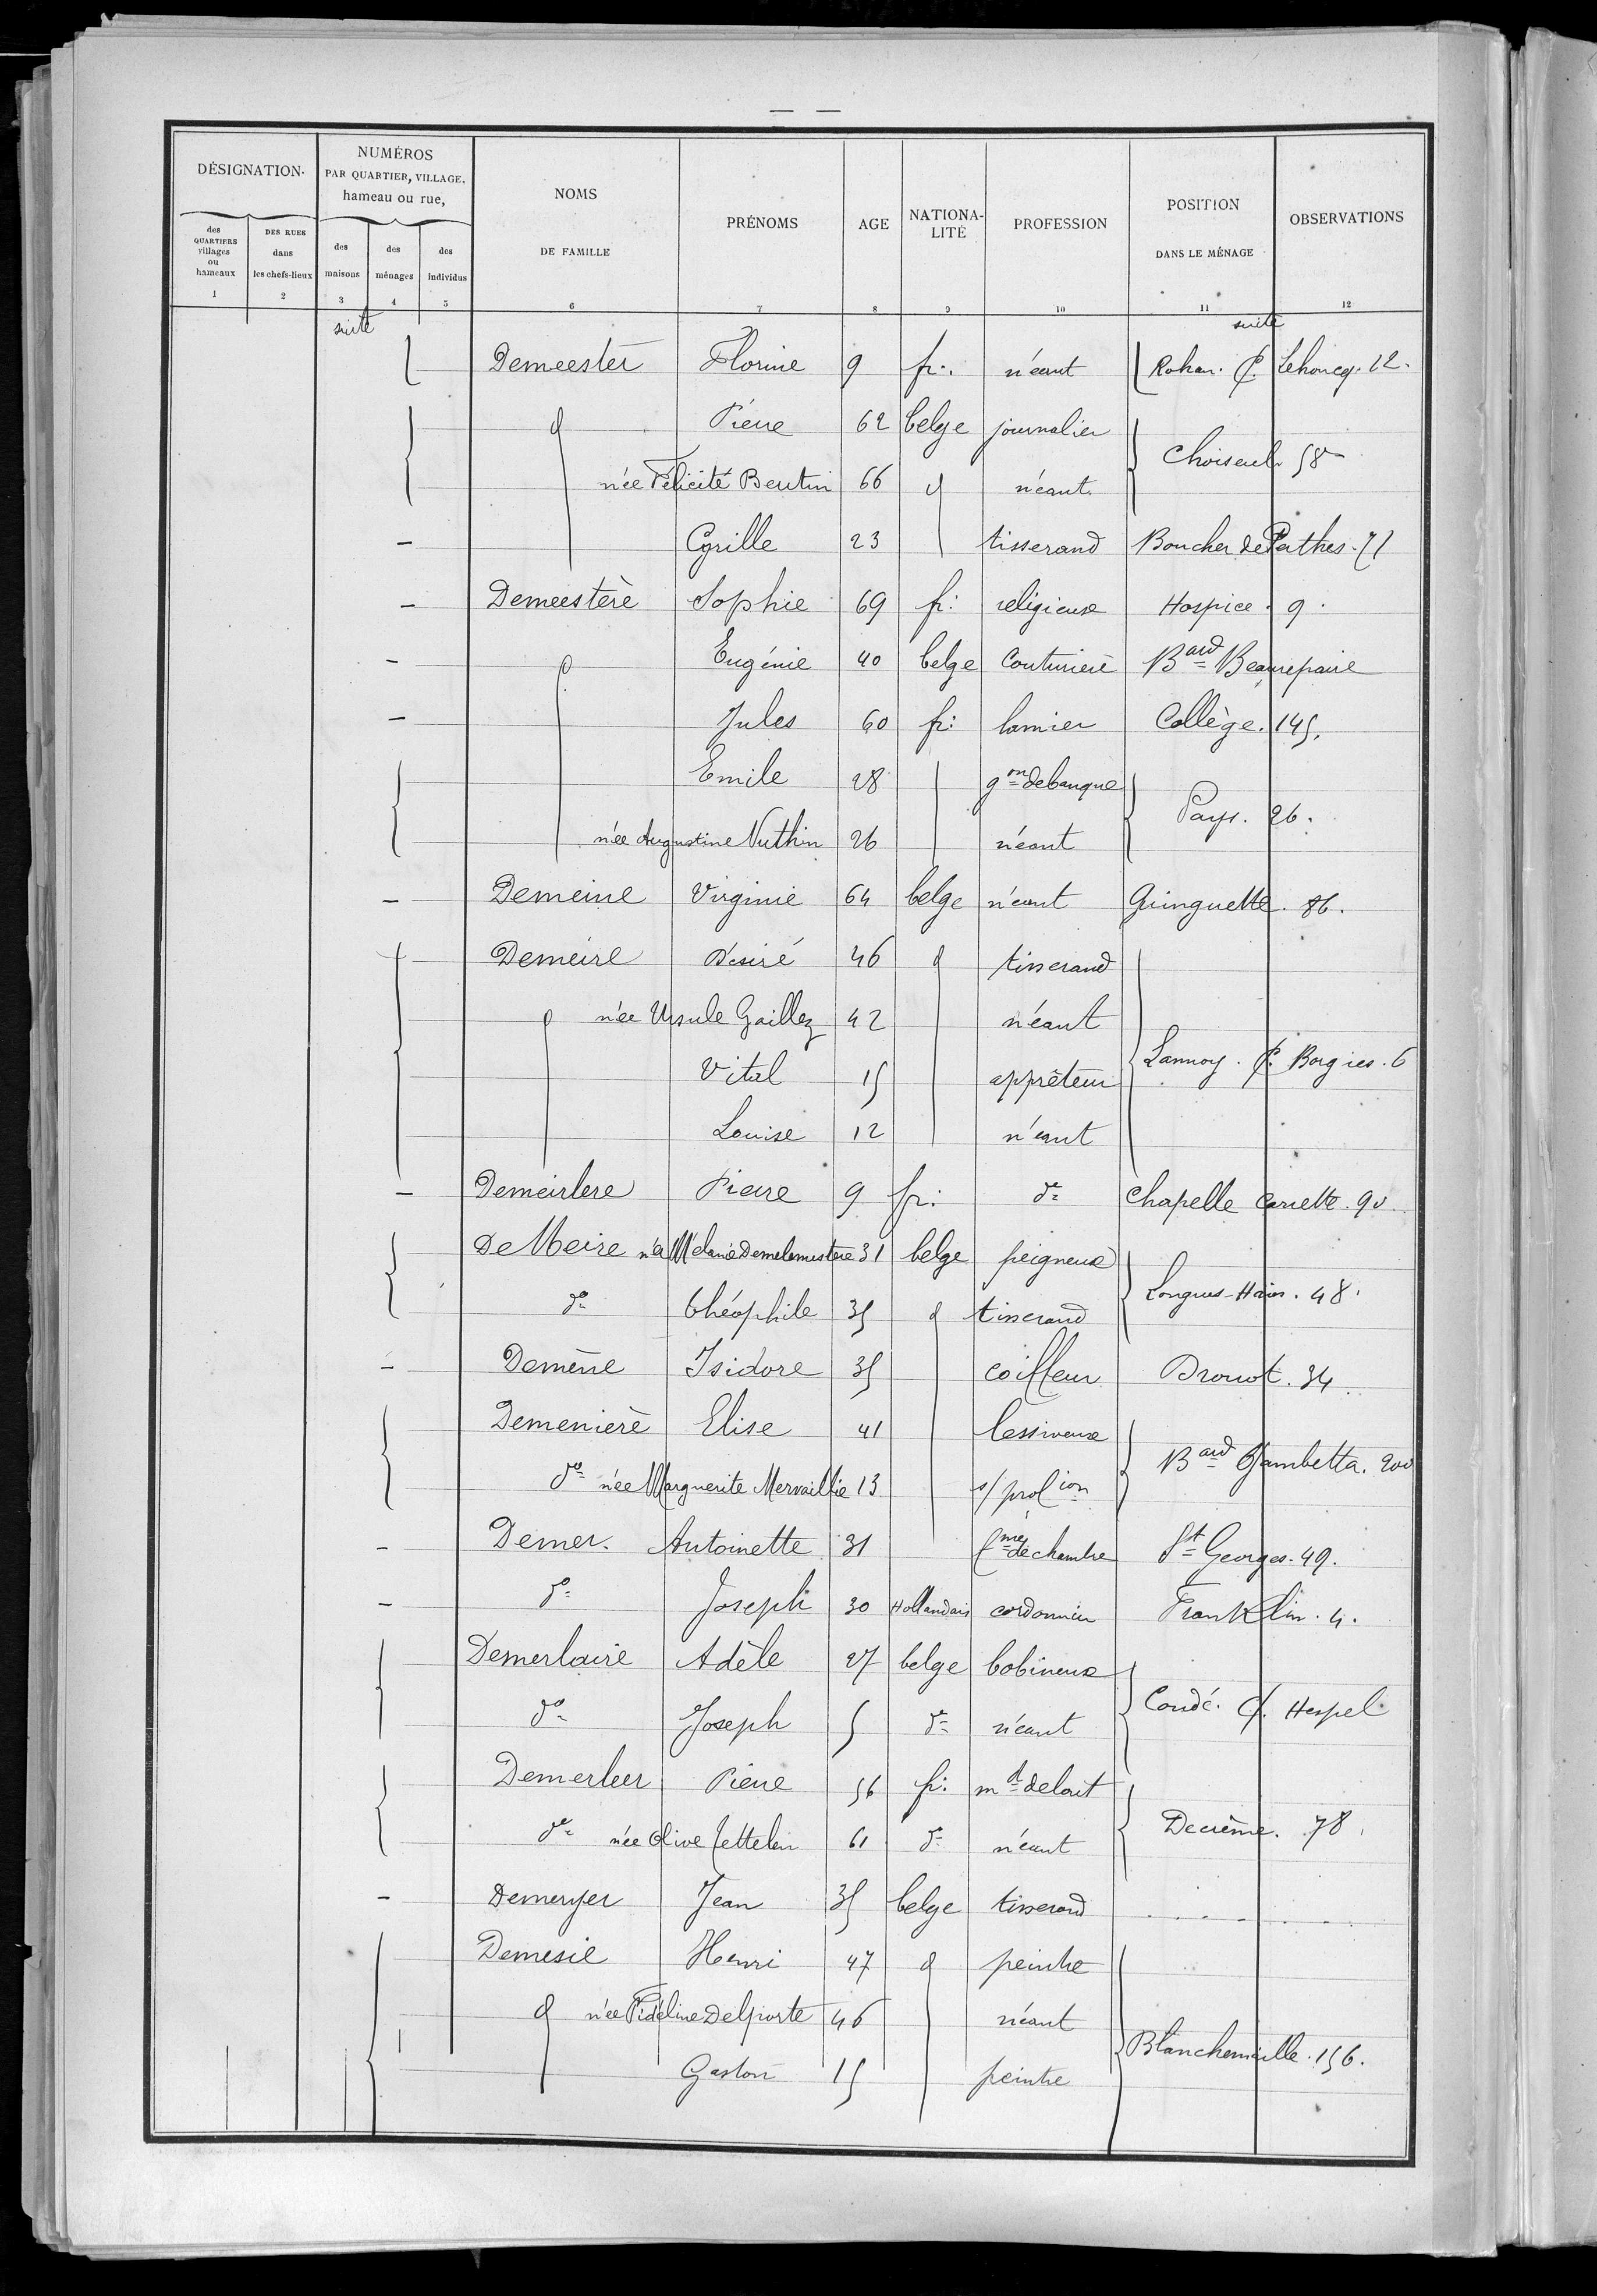 DÉSIGNATION. NUMÉROS PAR QUARTIER, VILLAGE. hameau ou rue, NOMS DE FAMILLE PRÉNOMS AGE NATIONALITÉ PROFESSION POSITION DANS LE MÉNAGE OBSERVATIONS
des QUARTIERS villages ou hameaux DES RUES dans les chefs-lieux des maisons des ménages des individus
1 2 3 4 5 6 7 8 9 10 11 12
suite suite
Demeester Florine 9 fr: néant Rohan. Lehoucq. 12.
d Pierre 62 belge journalier Choiseul 58
née Félicité Beutin 66 d néant
Cyrille 23 tisserand Boucher de Perthes. 71
Demeestère Sophie 69 fr: religieuse Hospice. 9.
d Eugénie 40 belge couturière Bard Beaurepaire
Jules 60 fr: lamier Collège. 145.
Emile 28 gon de banque Pays. 26.
née Augustine Nuthin 26 néant
Demeine Virginie 64 belge néant Guinguette. 86.
Demeire Désiré 46 d tisserand
d née Ursule Gaillez 42 néant
Vital 15 apprêteur Lannoy. Borgies. 6
Louise 12 néant
Demeirlere Pierre 9 fr: do Chapelle Carrette. 90.
De Meire née Mélanie Demelemestere 31 belge peigneuse Longues-Haies. 48.
do Théophile 35 d tisserand
Demène Isidore 35 coiffeur Drouot. 34.
Demenière Elise 41 lessiveuse Bard Gambetta. 200
do née Marguerite Mervaillie 13 s/profion
Demer. Antoinette 31 fme de chambre St Georges. 49.
do Joseph 30 Hollandais cordonnier Franklin. 4.
Demerlaire Adèle 27 belge bobineuse Condé. Hespel
do Joseph 5 do néant
Demerleer Pierre 56 fr: md de lait Decrème. 78.
do née Olive Tettelin 61 do néant
Demeryer Jean 35 belge tisserand . . . . . .
Demesie Henri 47 d peintre
d née Fidéline Delporte 46 néant Blanchemaille. 156.
Gaston 15 peintre